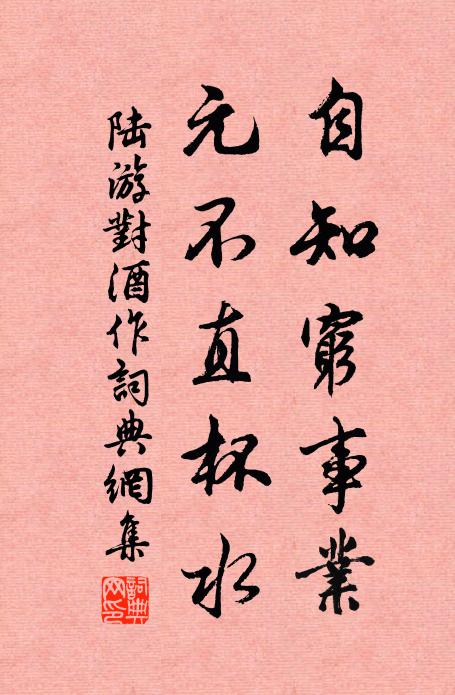 自知窮事業
元不直杯水
陆游對酒作詞典網集
詞典網印